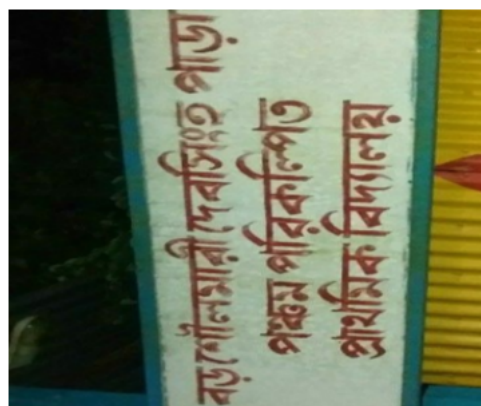 বড়শৌলমারী দেবসিংহ পাড়া
পঞ্চম পরিকল্পিত
প্রাথমিক বিদ্যালয়